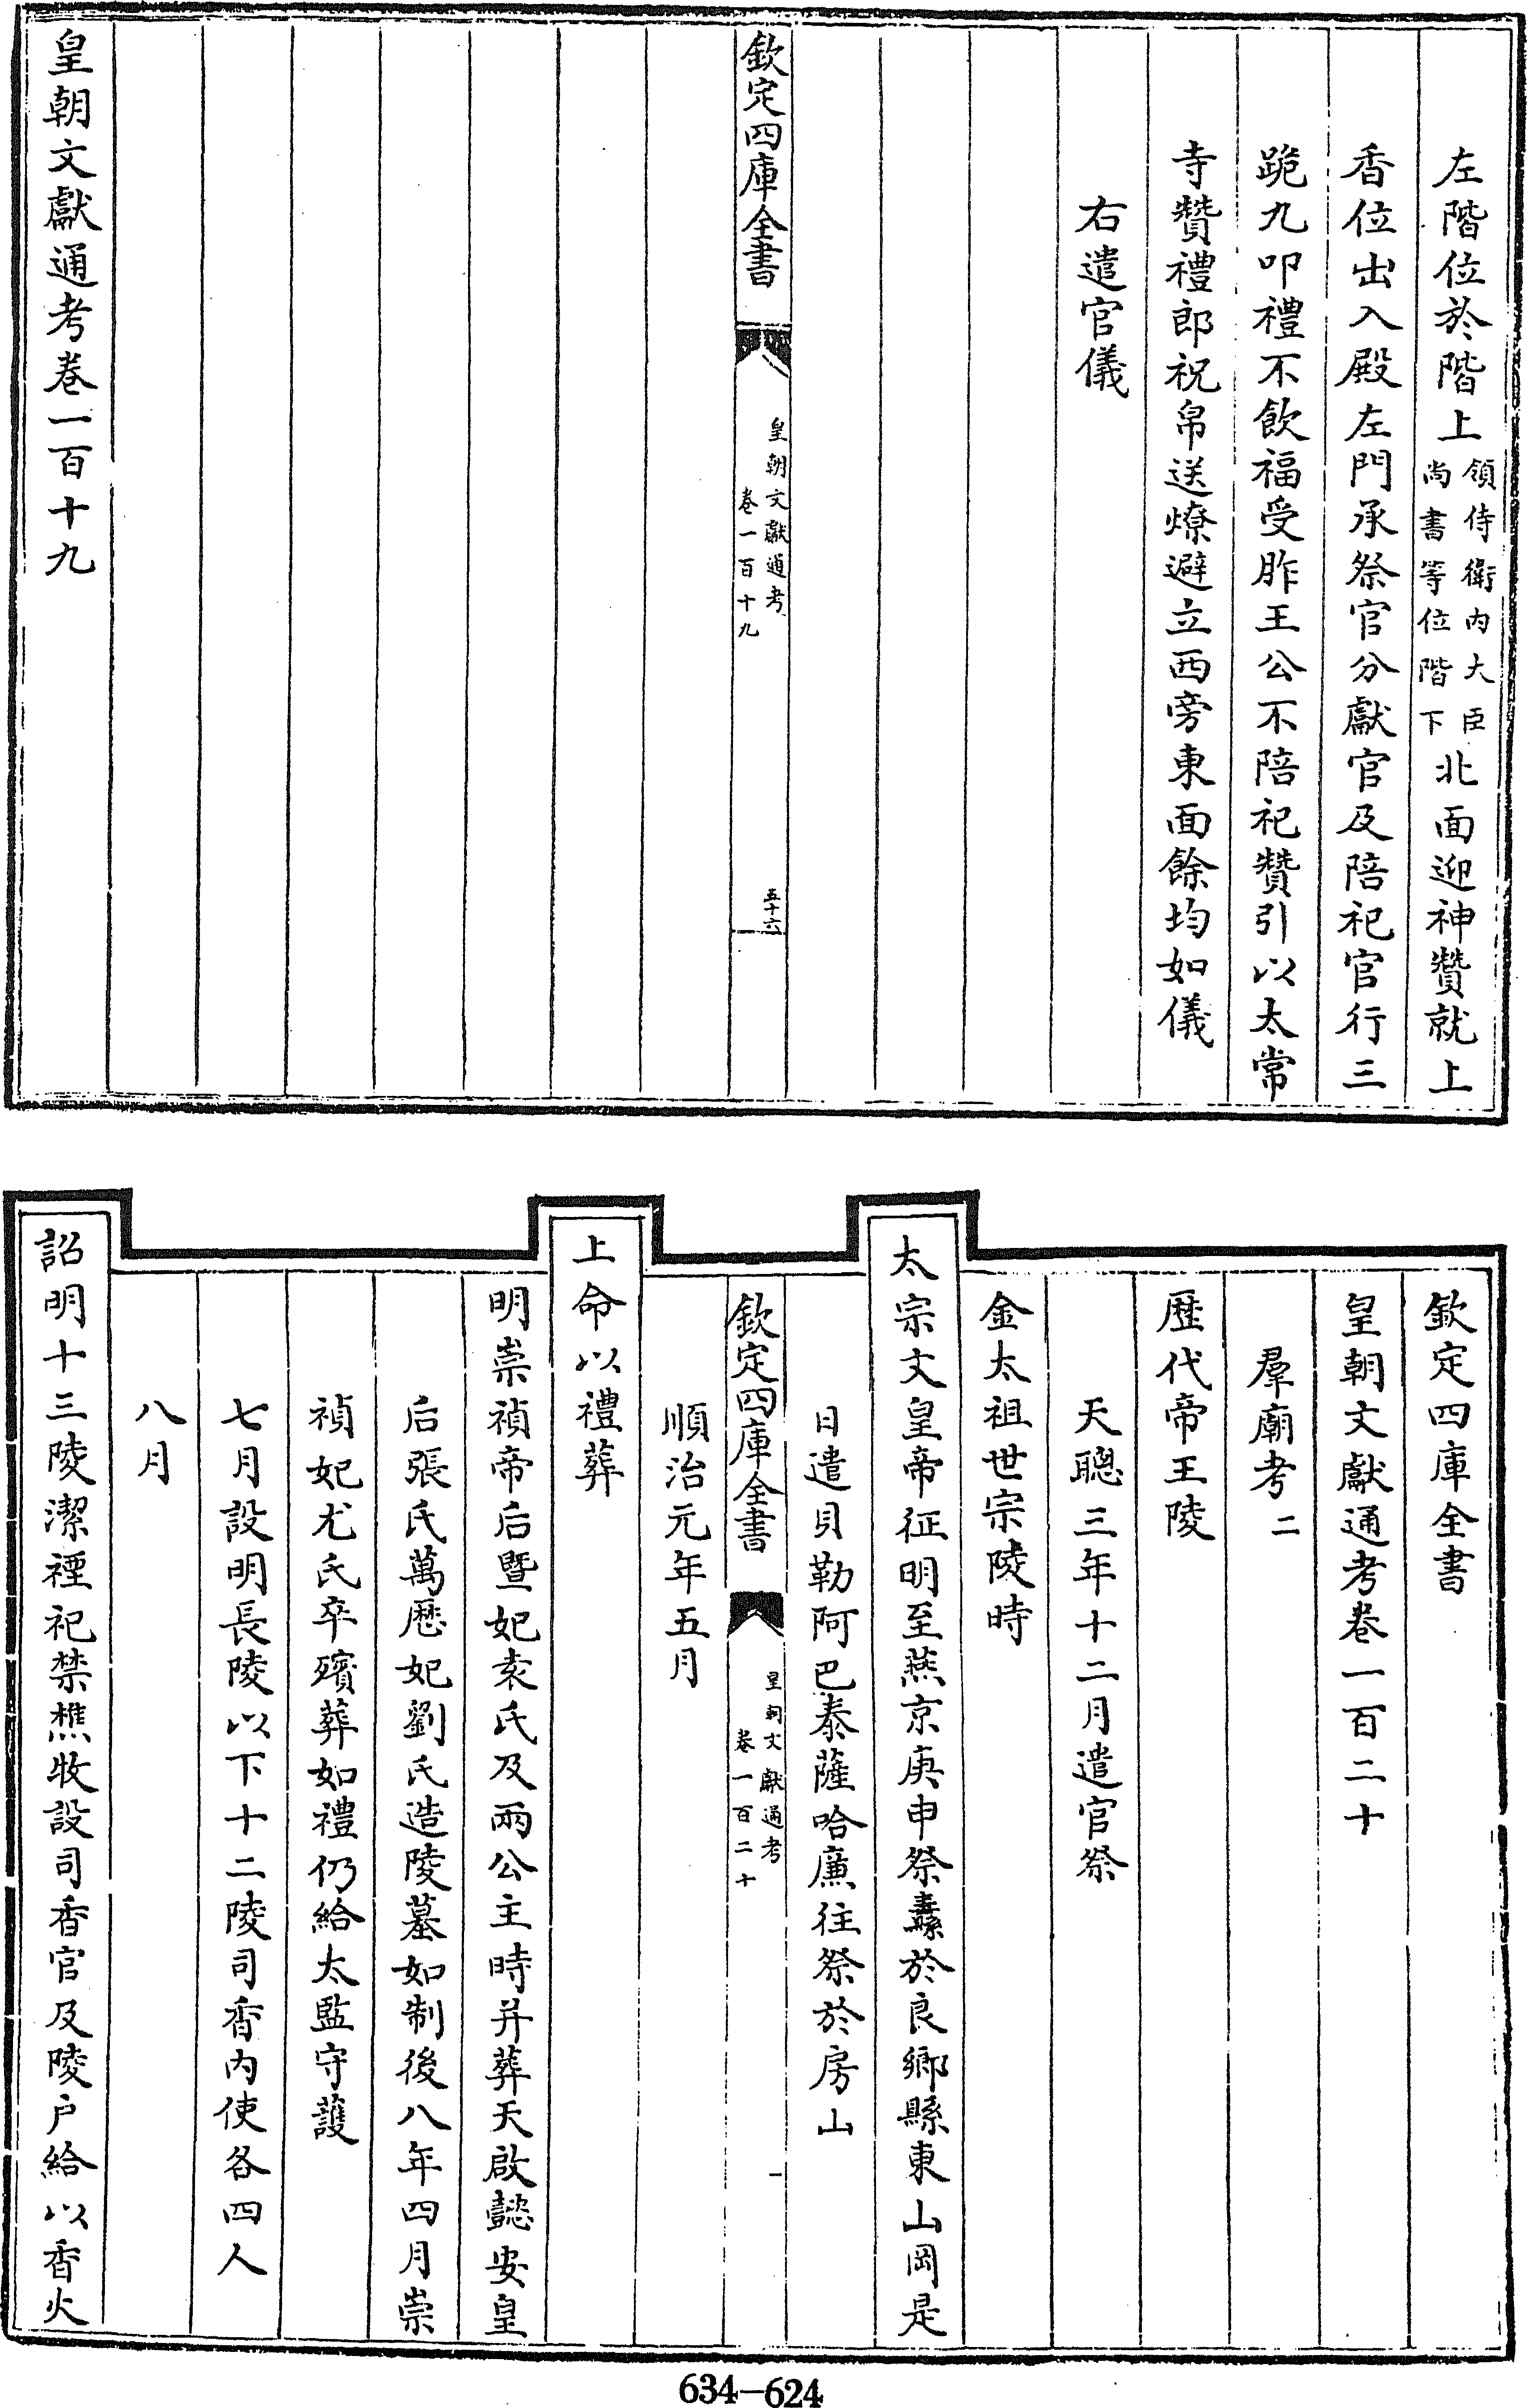 左階位於階上領侍衛内大臣尚書等位階下北面迎神贊就上
香位出入殿左門承祭官分獻官及陪祀官行三
跪九叩禮不飲福受胙王公不陪祀贊引以太常
寺贊禮郎祝帛送燎避立西旁東面餘均如儀
右遣官儀
欽定四庫全書
皇朝文獻通考
卷一百十九
五十六
皇朝文獻通考卷一百十九
欽定四庫全書
皇朝文獻通考卷一百二十
羣廟考二
歴代帝王陵
天聰三年十二月遣官祭
金太祖世宗陵時
太宗文皇帝征明至燕京庚申祭纛於良鄉縣東山岡是
日遣貝勒阿巴泰薩哈廉往祭於房山
欽定四庫全書
皇朝文獻通考
卷一百二十
一
順治元年五月
上命以禮葬
明崇禎帝后暨妃袁氏及兩公主時并葬天啟懿安皇
后張氏萬歴妃劉氏造陵墓如制後八年四月崇
禎妃尤氏卒殯葬如禮仍給太監守護
七月設明長陵以下十二陵司香内使各四人
八月
詔明十三陵潔禋祀禁樵牧設司香官及陵户給以香火
634-624